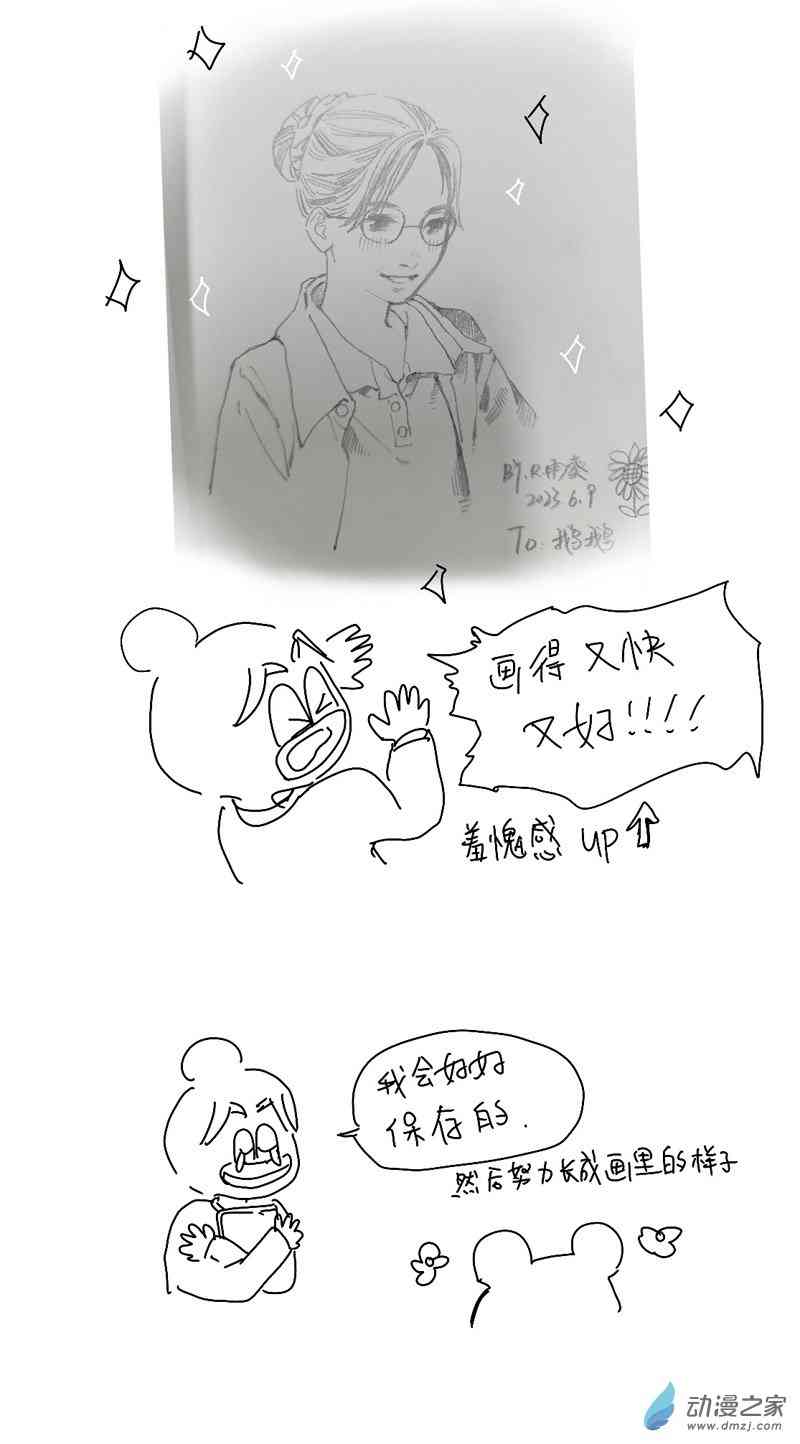 BY.R雨凌
2023.6.9
To:鹅鹅
画得又快
又好!!!!
羞愧感 UP
我会好好
保存的.
然后努力长成画里的样子
动漫之家
www.dmzj.com